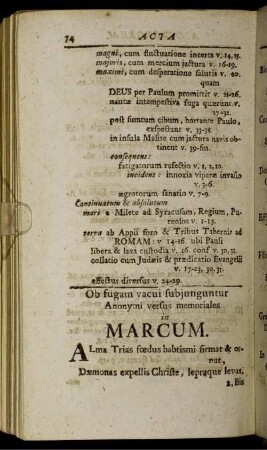 74 ACTA
magni, cum fluctuatione incerta v. 14, 15.
majoris, cum mercium jactura v. 16-19.
maximi, cum desperatione salutis v. 20.
quam
DEUS per Paulum promittit v. 21-26.
nautæ intempestiva fuga quærunt v.
17-32.
post sumtum cibum, hortante Paulo,
exspectant v. 33-38.
in insula Malite cum jactura navis ob-
tinent v. 39-fin.
consequens:
fatigatorum refectio v. 1, 2, 10.
incidens: innoxia viperæ invasio
v. 3-6.
ægrotorum sanatio v. 7-9.
Continuatum & absolutum
mari a Milete ad Syracusam, Regium, Pu-
teolos v. 1-13.
terra ab Appii foro & Tribus Tabernis ad
ROMAM: v. 14-16. ubi Pauli
libera & laxa custodia v. 16. conf v. 30, 31.
collatio cum Judæis & prædicatio Evangelii
v. 17-23, 30, 31.
effectus diversus v. 24-29.
Ob fugam vacui subjunguntur
Anonymi versus memoriales
in
MARCUM.
ALma Trias fœdus babtismi firmat & or-
nat,
Dæmonas expellis Christe, lepraque levas.
2. Bis